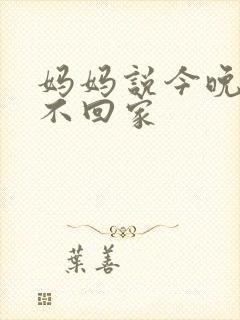 妈妈説今晚
不回家
葉善